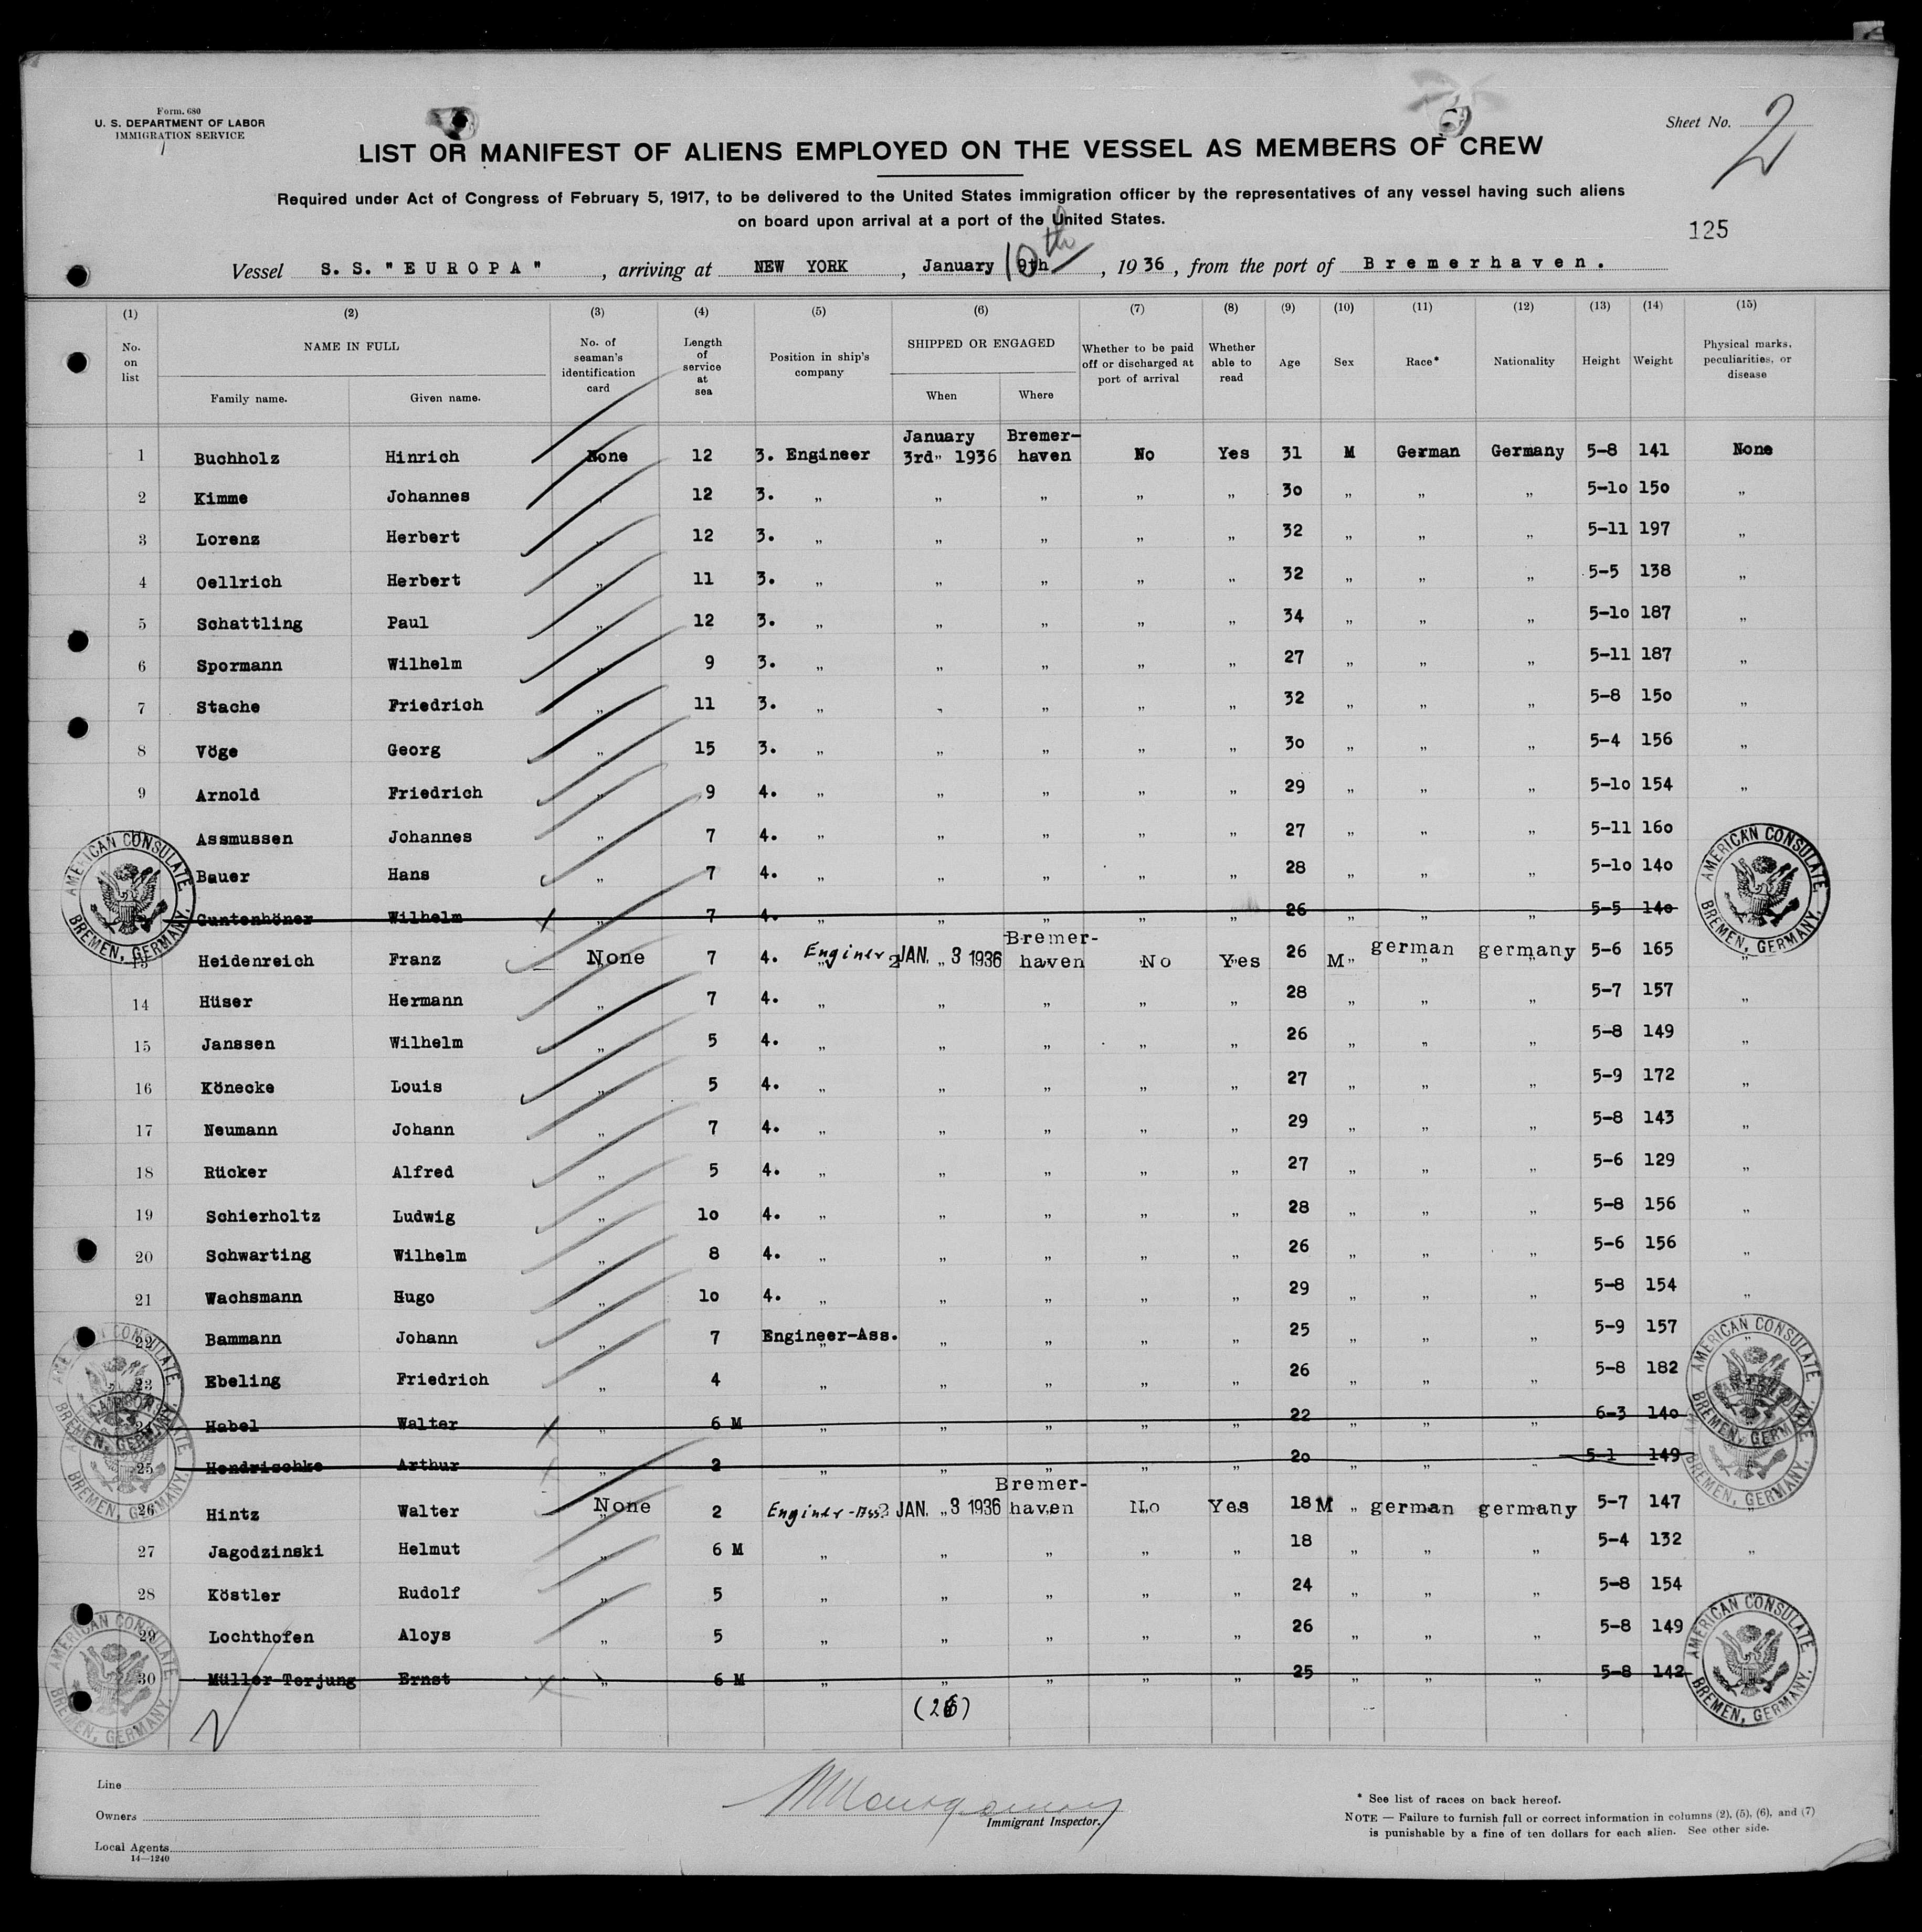 Form. 680
U. S. DEPARTMENT OF LABOR
IMMIGRATION SERVICE
Sheet No. 2
LIST OR MANIFEST OF ALIENS EMPLOYED ON THE VESSEL AS MEMBERS OF CREW
Required under Act of Congress of February 5, 1917, to be delivered to the United States immigration officer by the representatives of any vessel having such aliens
on board upon arrival at a port of the United States.
125
Vessel S. S. "EUROPA" , arriving at NEW YORK , January 9th 10th , 1936 , from the port of Bremerhaven.
(1) (2) (3) (4) (5) (6) (7) (8) (9) (10) (11) (12) (13) (14) (15)
No. on list NAME IN FULL Family name. Given name. No. of seaman's identification card Length of service at sea Position in ship's company SHIPPED OR ENGAGED When Where Whether to be paid off or discharged at port of arrival Whether able to read Age Sex Race* Nationality Height Weight Physical marks, peculiarities, or disease
1 Buchholz Hinrich None 12 3. Engineer January 3rd" 1936 Bremer-haven No Yes 31 M German Germany 5-8 141 None
2 Kimme Johannes " 12 3. " " " " " 30 " " " 5-10 150 "
3 Lorenz Herbert " 12 3. " " " " " 32 " " " 5-11 197 "
4 Oellrich Herbert " 11 3. " " " " " 32 " " " 5-5 138 "
5 Schattling Paul " 12 3. " " " " " 34 " " " 5-10 187 "
6 Spormann Wilhelm " 9 3. " " " " " 27 " " " 5-11 187 "
7 Stache Friedrich " 11 3. " " " " " 32 " " " 5-8 150 "
8 Vöge Georg " 15 3. " " " " " 30 " " " 5-4 156 "
9 Arnold Friedrich " 9 4. " " " " " 29 " " " 5-10 154 "
Assmussen Johannes " 7 4. " " " " " 27 " " " 5-11 160
Bauer Hans " 7 4. " " " " " 28 " " " 5-10 140
Guntenhöner Wilhelm " 7 4. " " " " " 26 " " " 5-5 140
13 Heidenreich Franz None 7 4. Enginer 2 JAN. " 3 1936 Bremer-haven No Yes 26 M " german germany 5-6 165 "
14 Hüser Hermann " 7 4. " " " " " 28 " " " 5-7 157 "
15 Janssen Wilhelm " 5 4. " " " " " 26 " " " 5-8 149 "
16 Könecke Louis " 5 4. " " " " " 27 " " " 5-9 172 "
17 Neumann Johann " 7 4. " " " " " 29 " " " 5-8 143 "
18 Rücker Alfred " 5 4. " " " " " 27 " " " 5-6 129 "
19 Schierholtz Ludwig " 10 4. " " " " " 28 " " " 5-8 156 "
20 Schwarting Wilhelm " 8 4. " " " " " 26 " " " 5-6 156 "
21 Wachsmann Hugo " 10 4. " " " " " 29 " " " 5-8 154 "
22 Bammann Johann " 7 Engineer-Ass. " " " " 25 " " " 5-9 157 "
23 Ebeling Friedrich " 4 " " " " " 26 " " " 5-8 182
Habel Walter " 6 M " " " " " 22 " " " 6-3 140
25 Hendrischke Arthur " 2 " " " " " 20 " " " 5-1 149
26 Hintz Walter None 2 Enginer-Ass. 2 JAN. " 3 1936 Bremer-haven No Yes 18 M " german germany 5-7 147 "
27 Jagodzinski Helmut " 6 M " " " " " 18 " " " 5-4 132 "
28 Köstler Rudolf " 5 " " " " " 24 " " " 5-8 154
29 Lochthofen Aloys " 5 " " " " " 26 " " " 5-8 149
30 Müller-Terjung Ernst " 6 M " " " " " 25 " " " 5-8 142
AMERICAN CONSULATE BREMEN, GERMANY.
AMERICAN CONSULATE BREMEN, GERMANY.
AMERICAN CONSULATE BREMEN, GERMANY.
AMERICAN CONSULATE BREMEN, GERMANY.
AMERICAN CONSULATE BREMEN, GERMANY.
AMERICAN CONSULATE BREMEN, GERMANY.
(26)
Line
Owners
Local Agents
14—1240
Immigrant Inspector.
* See list of races on back hereof.
NOTE — Failure to furnish full or correct information in columns (2), (5), (6), and (7)
is punishable by a fine of ten dollars for each alien. See other side.